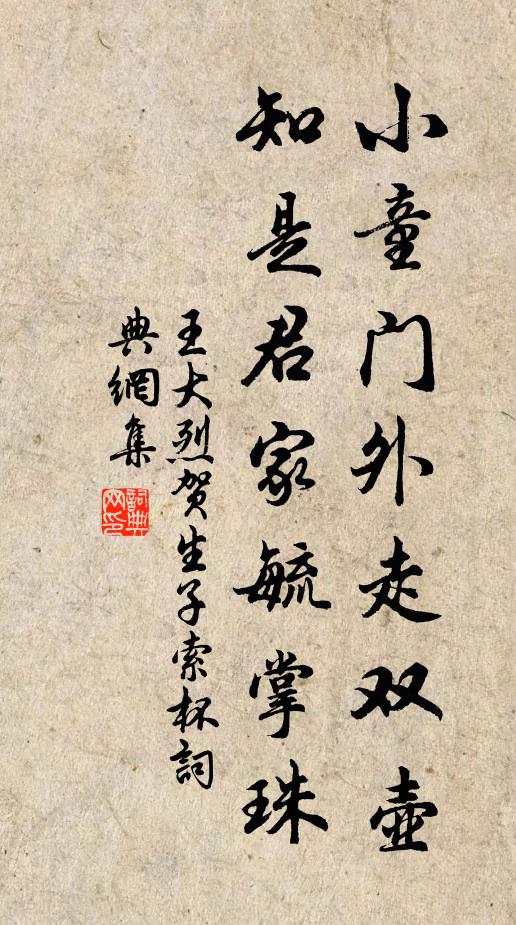 小童門外走双壺
知是君家毓掌珠
王大烈贺生子索杯詞
典網集
詞典网印